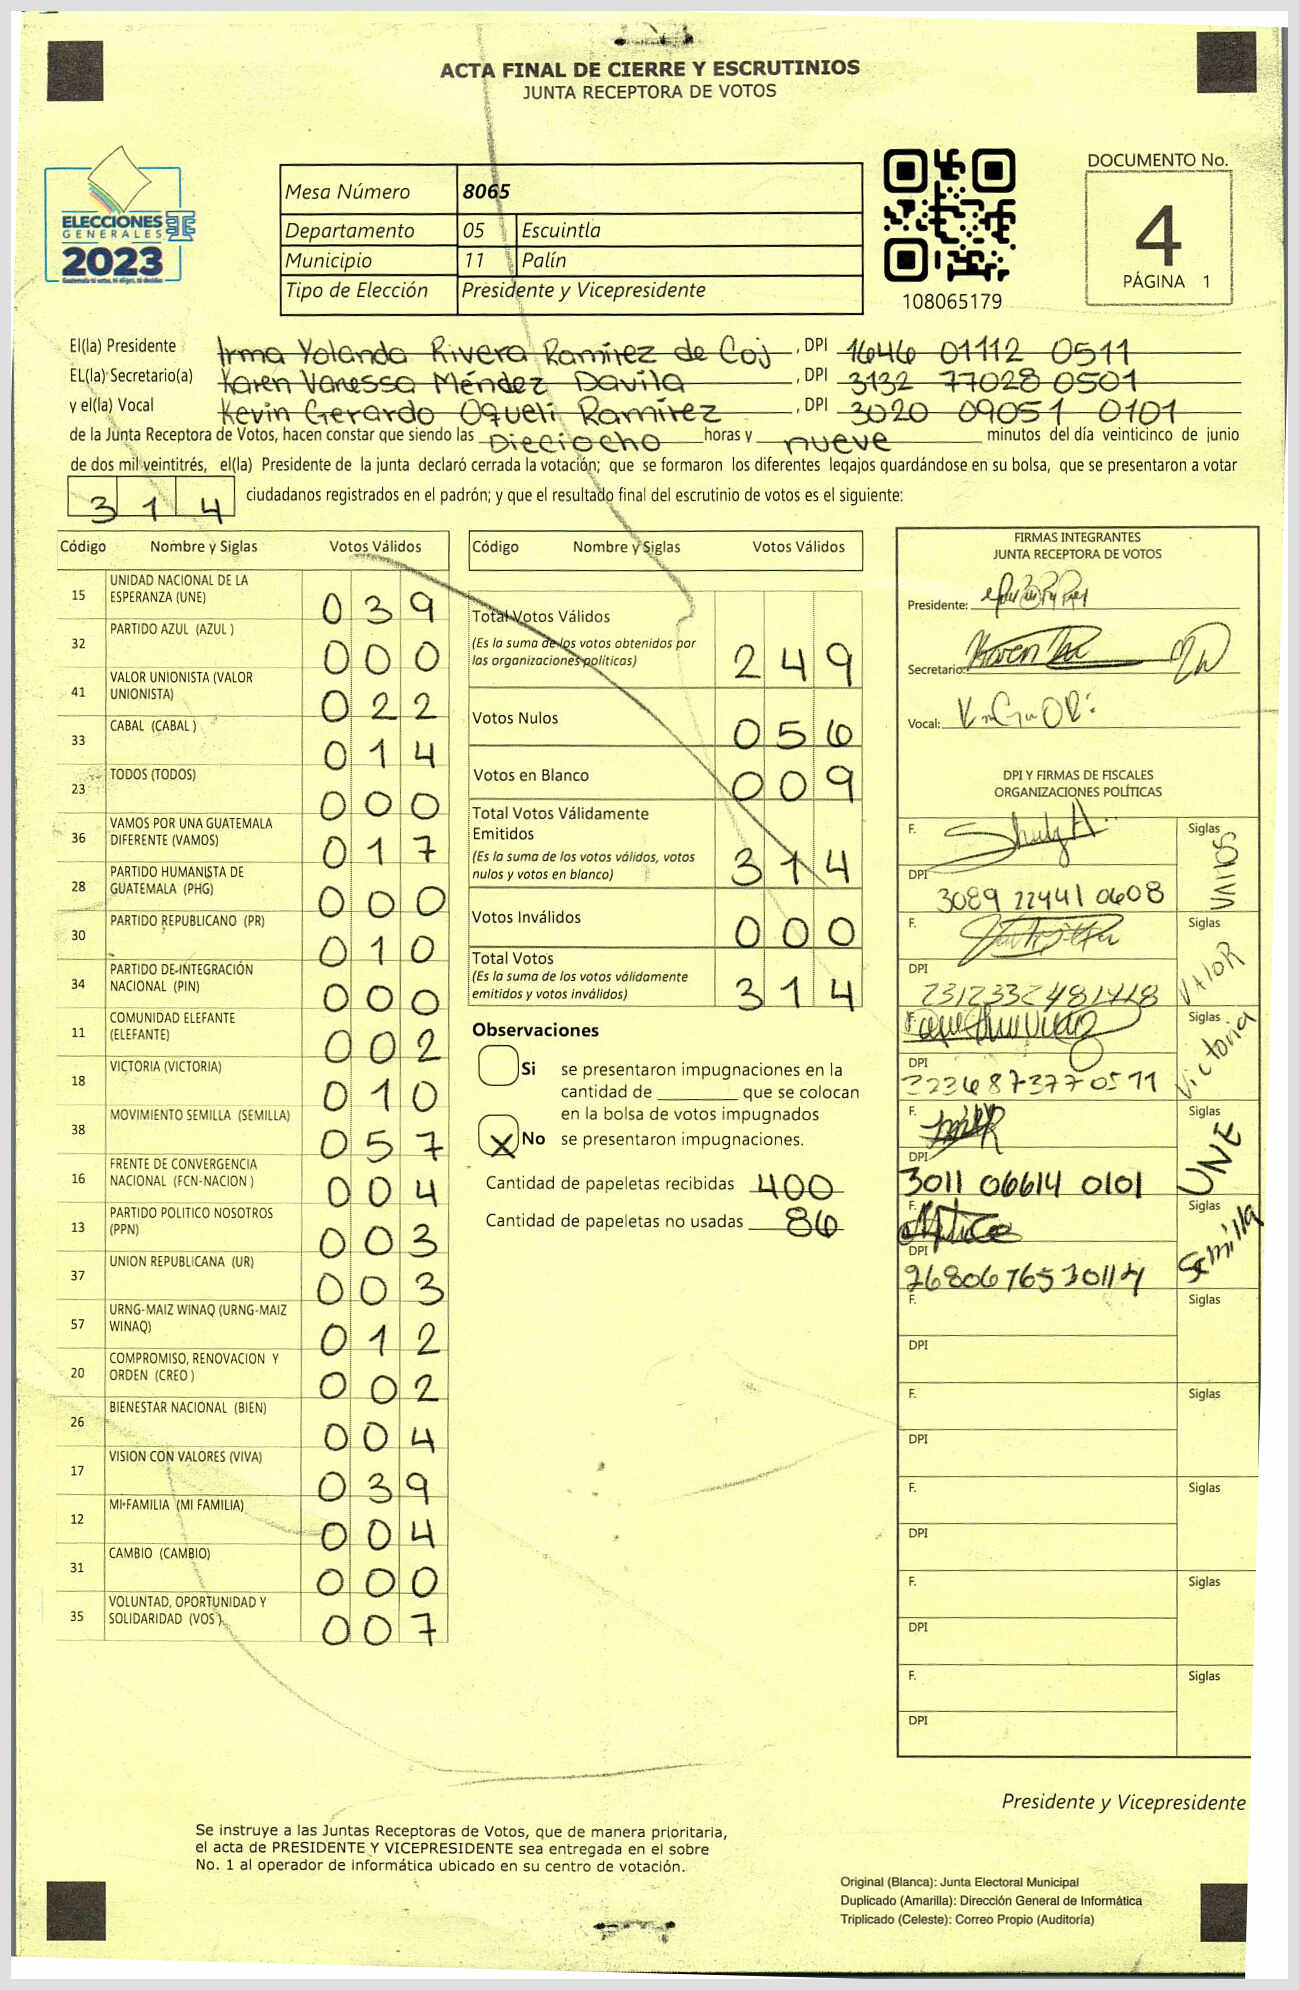 ACTA FINAL DE CIERRE Y ESCRUTINIOS
JUNTA RECEPTORA DE VOTOS
ELECCIONES
GENERALES
2023
Mesa Número 8065
Departamento 05 Escuintla
Municipio 11 Palín
Tipo de Elección Presidente y Vicepresidente
108065179
DOCUMENTO No.
4
PÁGINA 1
El(la) Presidente Irma Yolanda Rivera Ramírez de Coj, DPI 1646 01112 0511
EL(la) Secretario(a) Karen Vanessa Méndez Davila, DPI 3132 77028 0501
y el(la) Vocal Kevin Gerardo Oqueli Ramírez, DPI 3020 09051 0101
de la Junta Receptora de Votos, hacen constar que siendo las Dieciocho horas y nueve minutos del día veinticinco de junio
de dos mil veintitrés, el(la) Presidente de la junta declaró cerrada la votación; que se formaron los diferentes legajos guardándose en su bolsa, que se presentaron a votar
314 ciudadanos registrados en el padrón; y que el resultado final del escrutinio de votos es el siguiente:
Código Nombre y Siglas Votos Válidos
15 UNIDAD NACIONAL DE LA ESPERANZA (UNE) 039
32 PARTIDO AZUL (AZUL ) 000
41 VALOR UNIONISTA (VALOR UNIONISTA) 022
33 CABAL (CABAL ) 014
23 TODOS (TODOS) 000
36 VAMOS POR UNA GUATEMALA DIFERENTE (VAMOS) 017
28 PARTIDO HUMANISTA DE GUATEMALA (PHG) 000
30 PARTIDO REPUBLICANO (PR) 010
34 PARTIDO DE INTEGRACIÓN NACIONAL (PIN) 000
11 COMUNIDAD ELEFANTE (ELEFANTE) 002
18 VICTORIA (VICTORIA) 010
38 MOVIMIENTO SEMILLA (SEMILLA) 057
16 FRENTE DE CONVERGENCIA NACIONAL (FCN-NACION ) 004
13 PARTIDO POLITICO NOSOTROS (PPN) 003
37 UNION REPUBLICANA (UR) 003
57 URNG-MAIZ WINAQ (URNG-MAIZ WINAQ) 012
20 COMPROMISO, RENOVACION Y ORDEN (CREO ) 002
26 BIENESTAR NACIONAL (BIEN) 004
17 VISION CON VALORES (VIVA) 039
12 MI FAMILIA (MI FAMILIA) 004
31 CAMBIO (CAMBIO) 000
35 VOLUNTAD, OPORTUNIDAD Y SOLIDARIDAD (VOS ) 007
Código Nombre y Siglas Votos Válidos
Total Votos Válidos
(Es la suma de los votos obtenidos por
las organizaciones políticas) 249
Votos Nulos 056
Votos en Blanco 009
Total Votos Válidamente
Emitidos
(Es la suma de los votos válidos, votos
nulos y votos en blanco) 314
Votos Inválidos 000
Total Votos
(Es la suma de los votos válidamente
emitidos y votos inválidos) 314
Observaciones
Si se presentaron impugnaciones en la
cantidad de ________ que se colocan
en la bolsa de votos impugnados
X No se presentaron impugnaciones.
Cantidad de papeletas recibidas 400
Cantidad de papeletas no usadas 86
FIRMAS INTEGRANTES
JUNTA RECEPTORA DE VOTOS
Presidente:
Secretario:
Vocal:
DPI Y FIRMAS DE FISCALES
ORGANIZACIONES POLÍTICAS
F. Siglas VAMOS
DPI 3089 22441 0608
F. Siglas VALOR
DPI
F. Siglas Victoria
DPI
F. Siglas UNE
DPI 3011 06614 0101
F. Siglas Semilla
DPI
F. Siglas
DPI
F. Siglas
DPI
F. Siglas
DPI
F. Siglas
DPI
F. Siglas
DPI
Presidente y Vicepresidente
Se instruye a las Juntas Receptoras de Votos, que de manera prioritaria,
el acta de PRESIDENTE Y VICEPRESIDENTE sea entregada en el sobre
No. 1 al operador de informática ubicado en su centro de votación.
Original (Blanca): Junta Electoral Municipal
Duplicado (Amarilla): Dirección General de Informática
Triplicado (Celeste): Correo Propio (Auditoría)